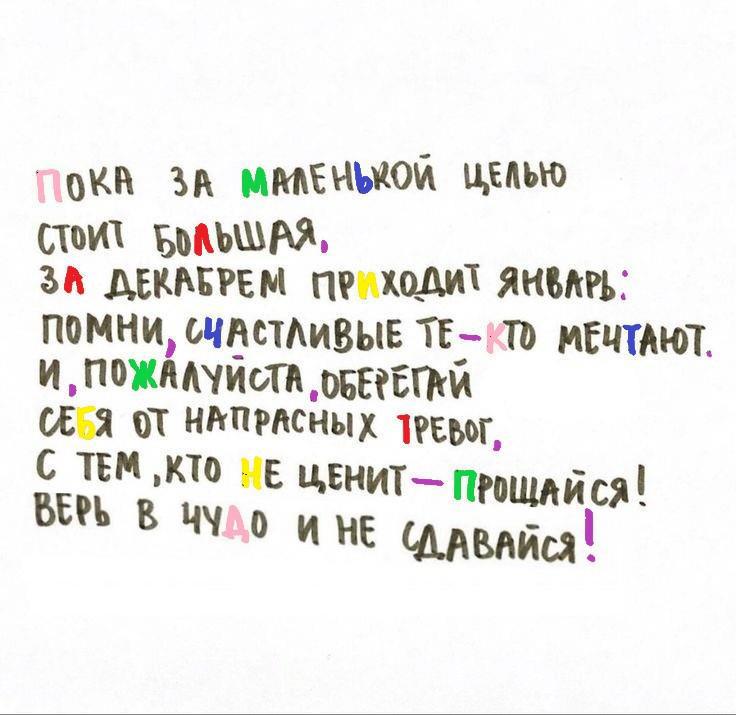 ПОКА ЗА МАЛЕНЬКОЙ ЦЕЛЬЮ
СТОИТ БОЛЬШАЯ,
ЗА ДЕКАБРЕМ ПРИХОДИТ ЯНВАРЬ:
ПОМНИ, СЧАСТЛИВЫЕ ТЕ – КТО МЕЧТАЮТ.
И, ПОЖАЛУЙСТА, ОБЕРЕГАЙ
СЕБЯ ОТ НАПРАСНЫХ ТРЕВОГ,
С ТЕМ, КТО НЕ ЦЕНИТ – ПРОЩАЙСЯ!
ВЕРЬ В ЧУДО И НЕ СДАВАЙСЯ!